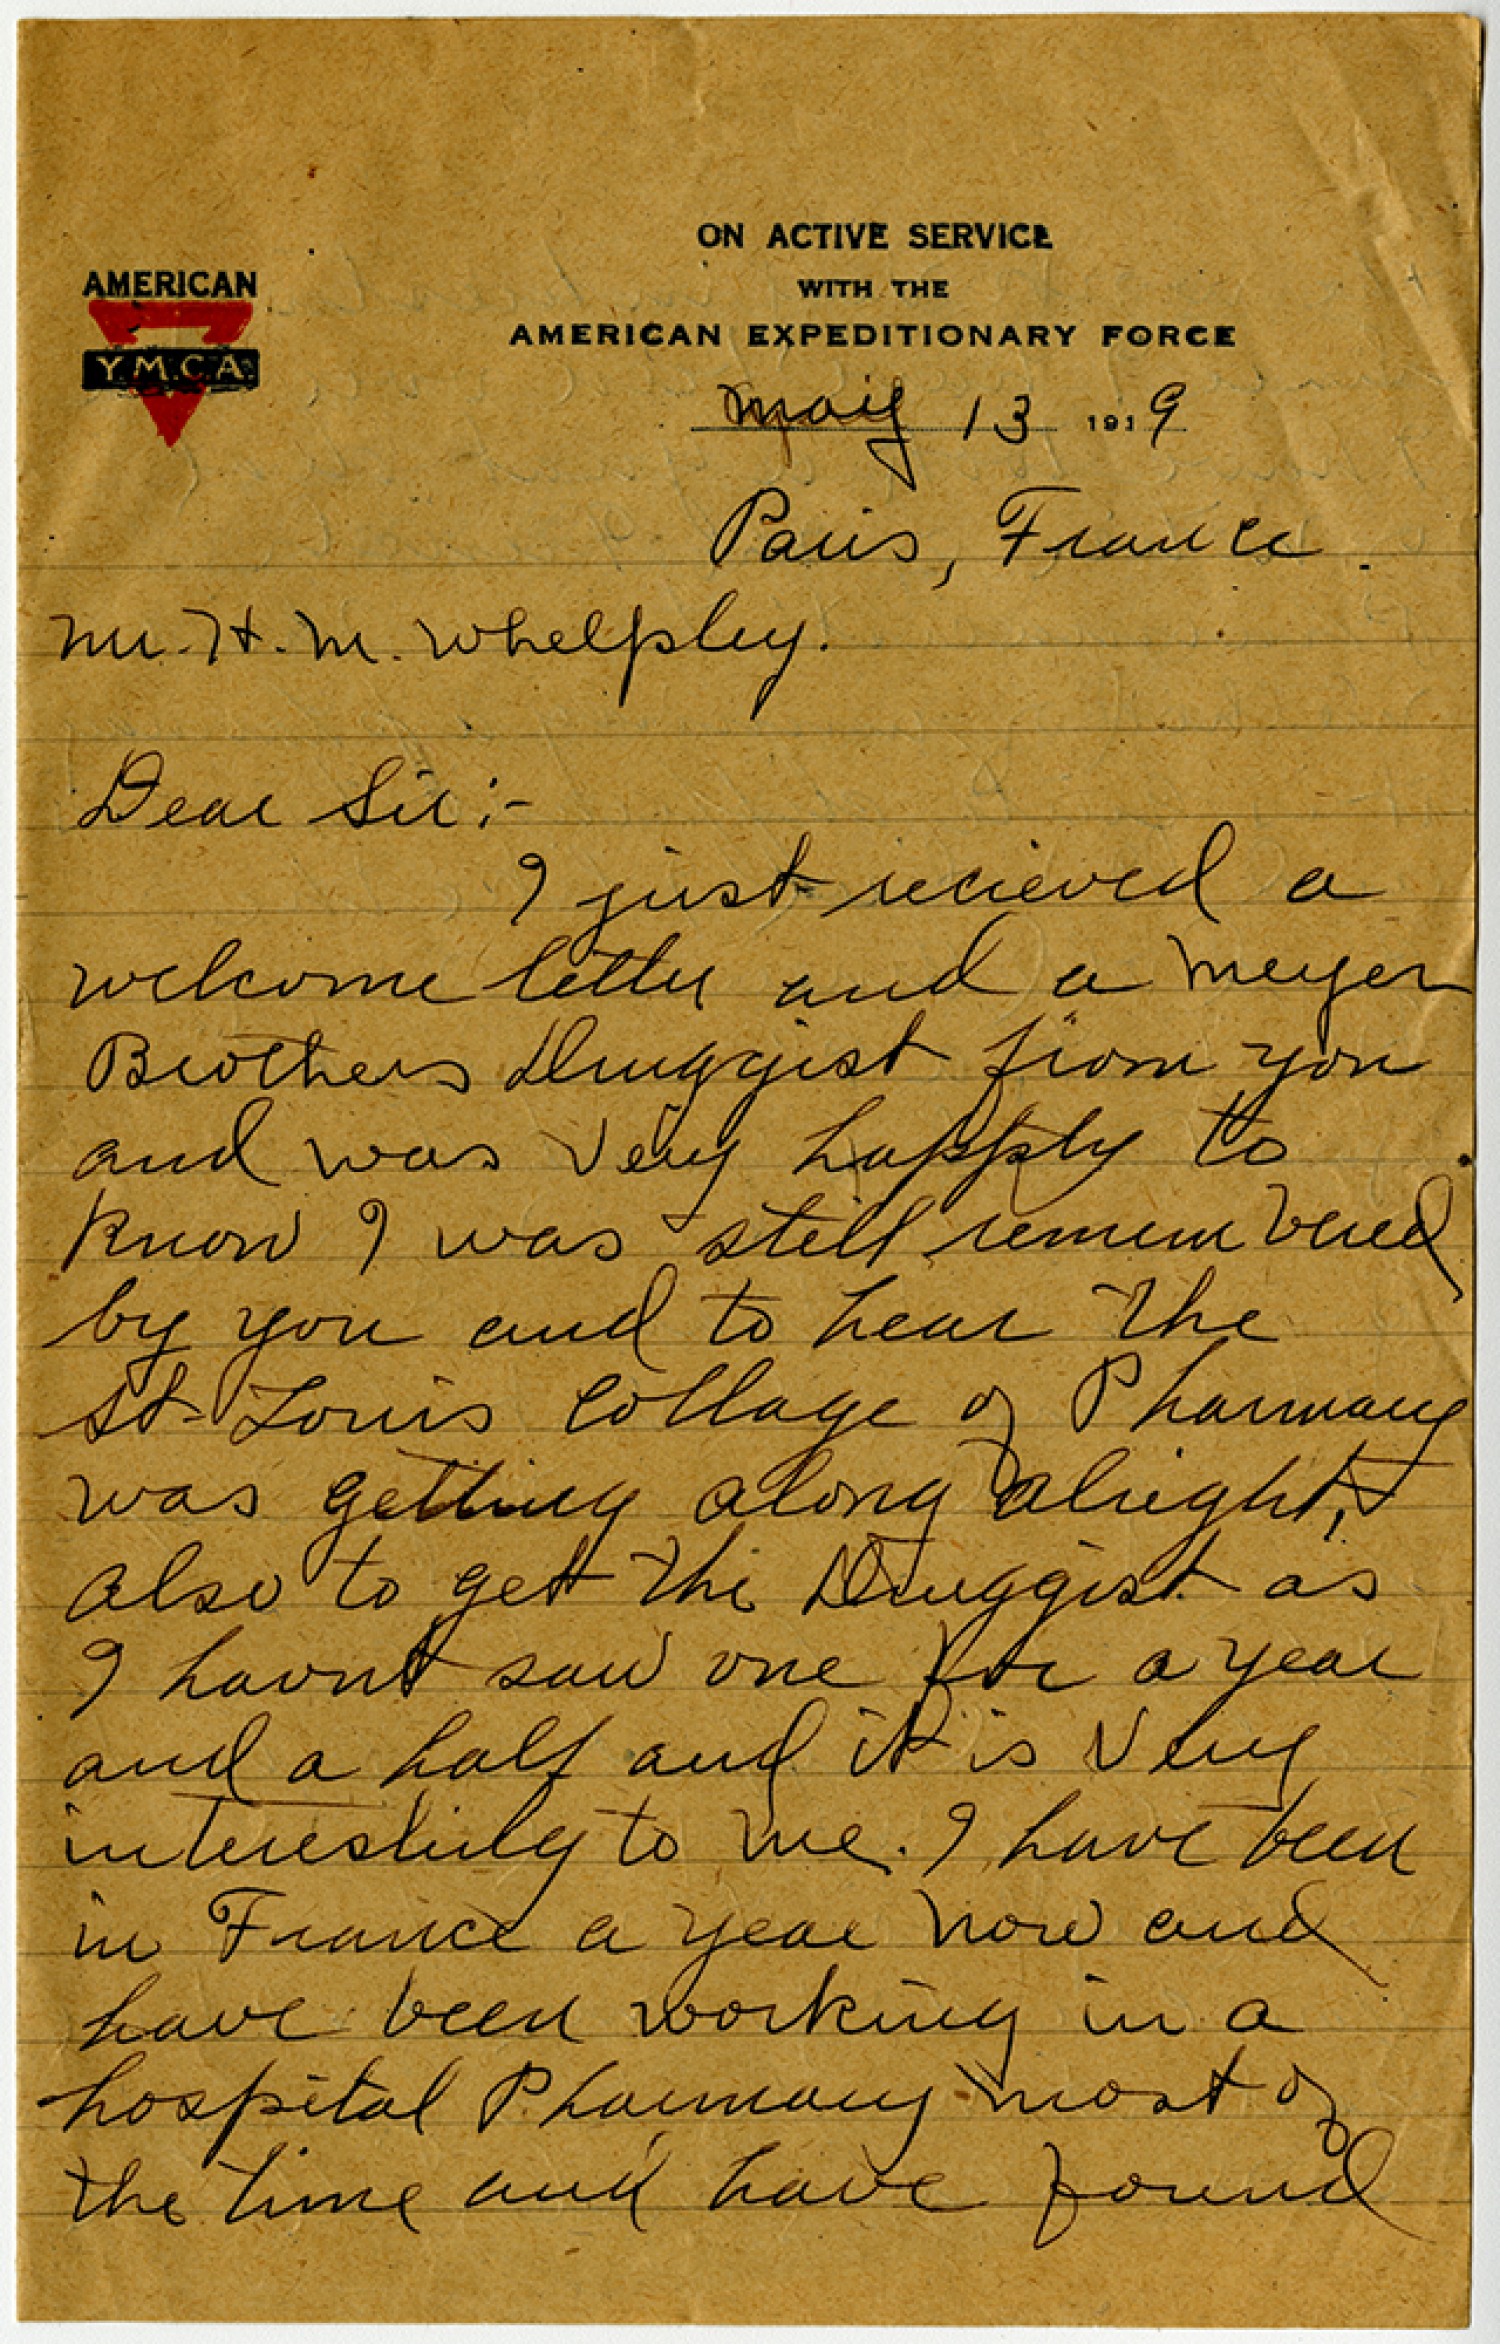 ON ACTIVE SERVICE
WITH THE
AMERICAN EXPEDITIONARY FORCE
AMERICAN
Y.M.C.A.
May 13 1919
Paris, France.
Mr. H. M. Whelpley.
Dear Sir:-
I just recieved a
welcome letter and a Meyer
Brothers Druggist from you
and was very happy to
know I was still remembered
by you and to hear the
St. Louis Collage of Pharmacy
was getting along alright,
also to get the Druggist as
I havnt saw one for a year
and a half and it is very
interesting to me. I have been
in France a year now and
have been working in a
hospital Pharmacy most of
the time and have found